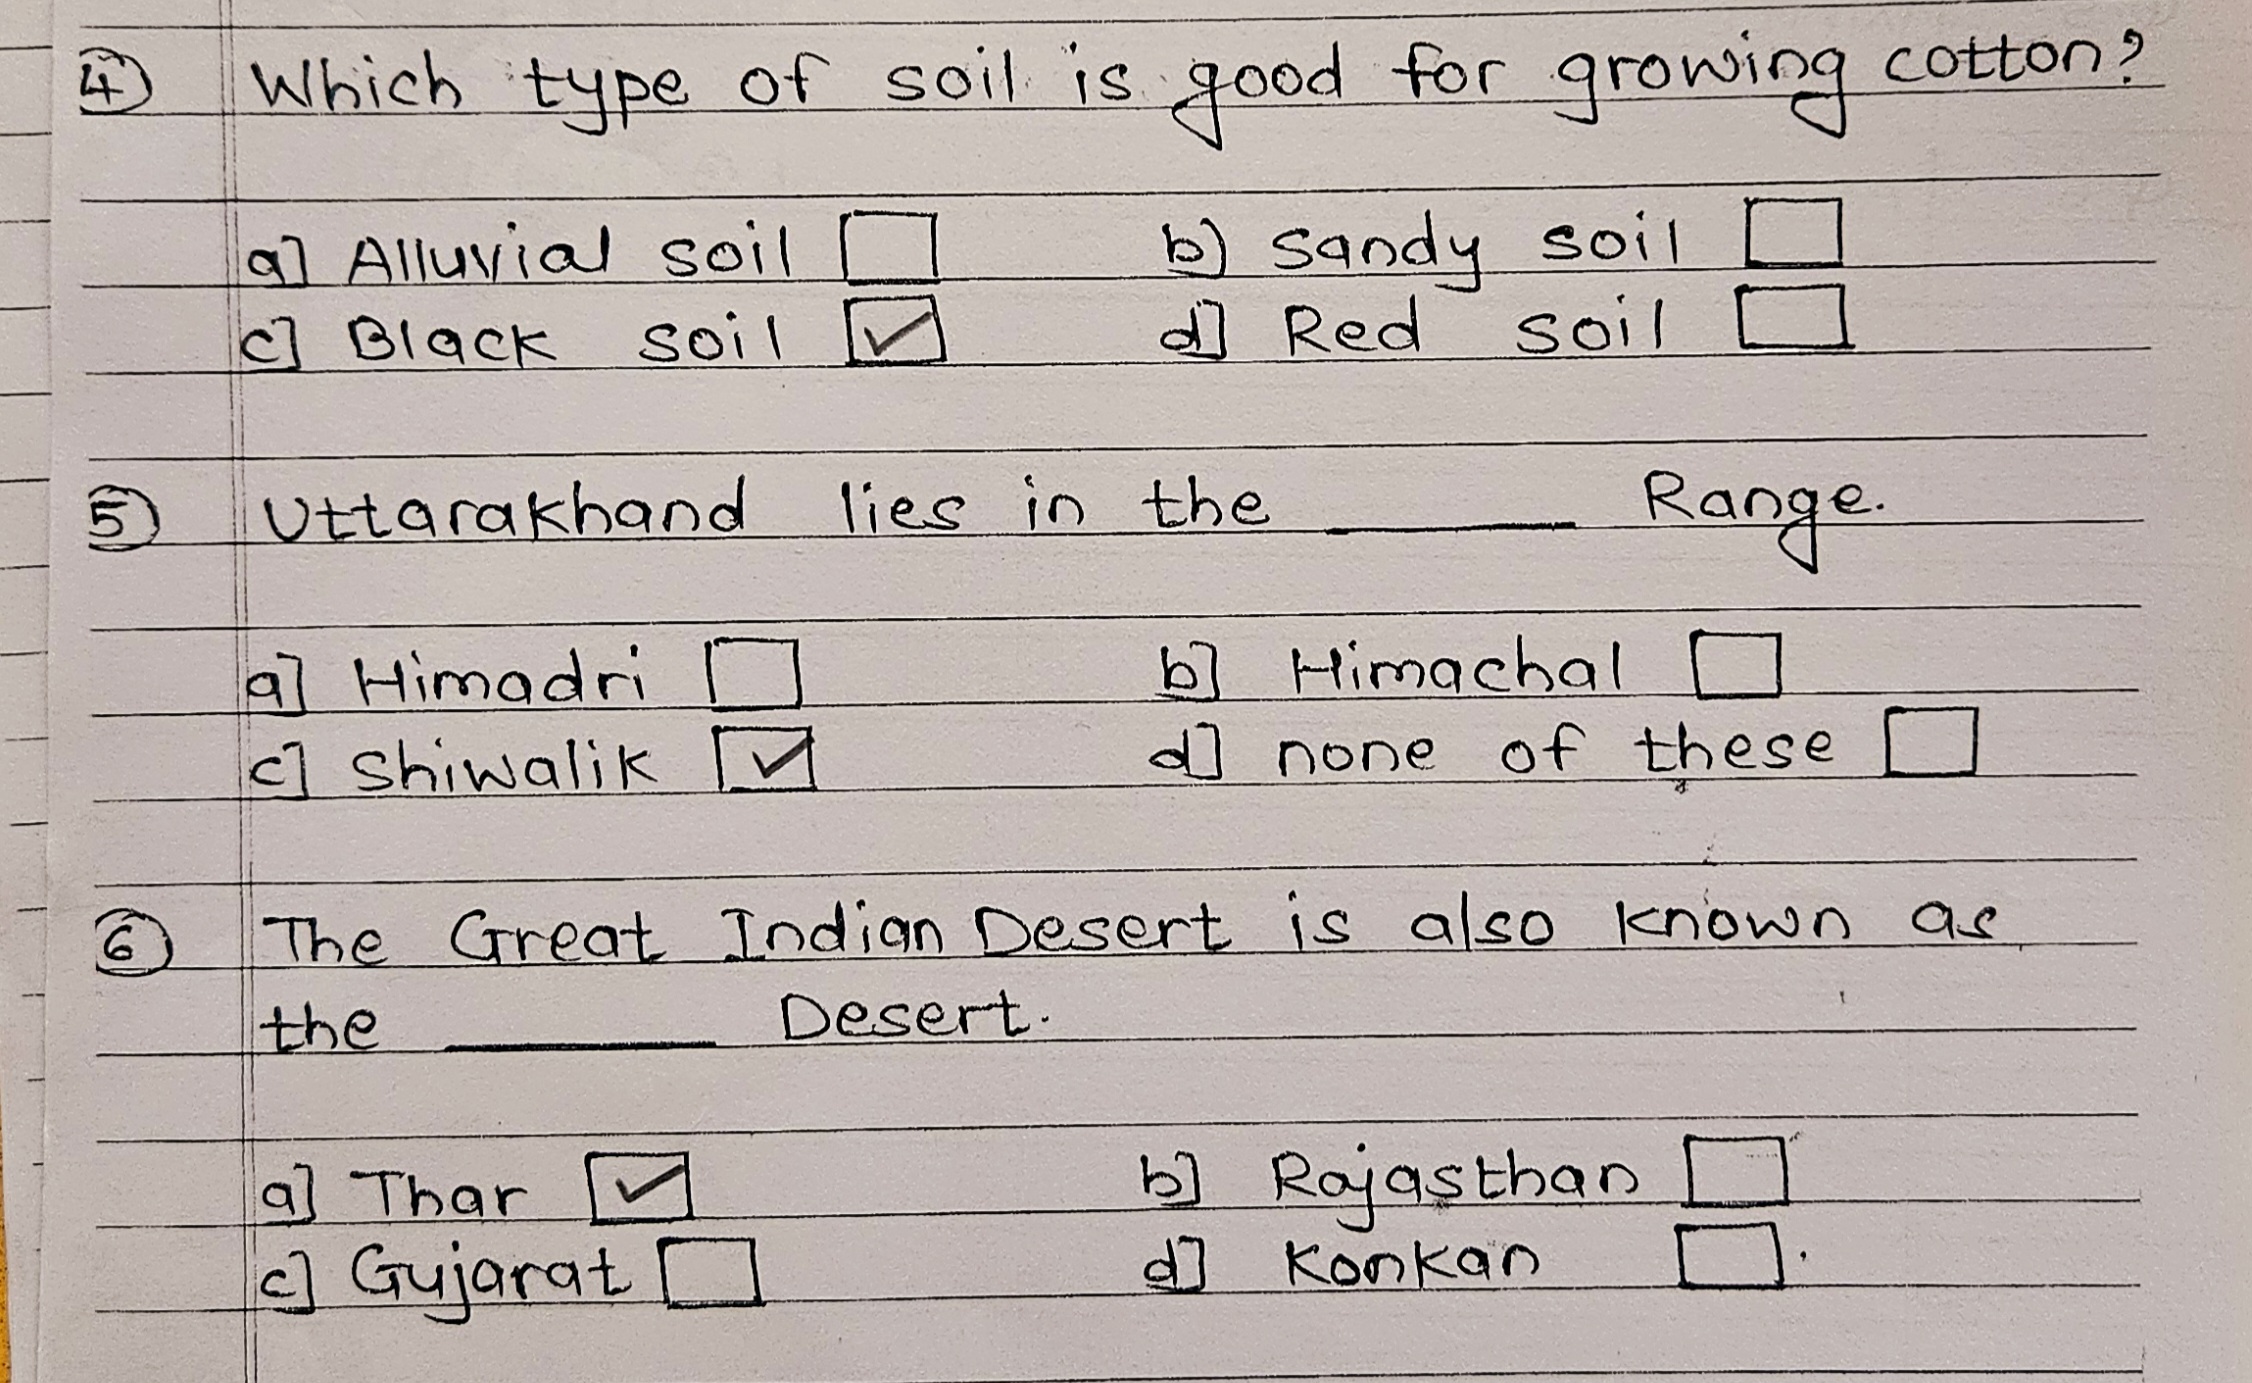 4) Which type of soil is good for growing cotton?
a] Alluvial soil ☐ b) Sandy soil ☐
c] Black soil ☑ d] Red soil ☐
5) Uttarakhand lies in the ______ Range.
a] Himadri ☐ b] Himachal ☐
c] Shiwalik ☑ d] none of these ☐
6) The Great Indian Desert is also known as
the ______ Desert.
a] Thar ☑ b] Rajasthan ☐
c] Gujarat ☐ d] Konkan ☐.